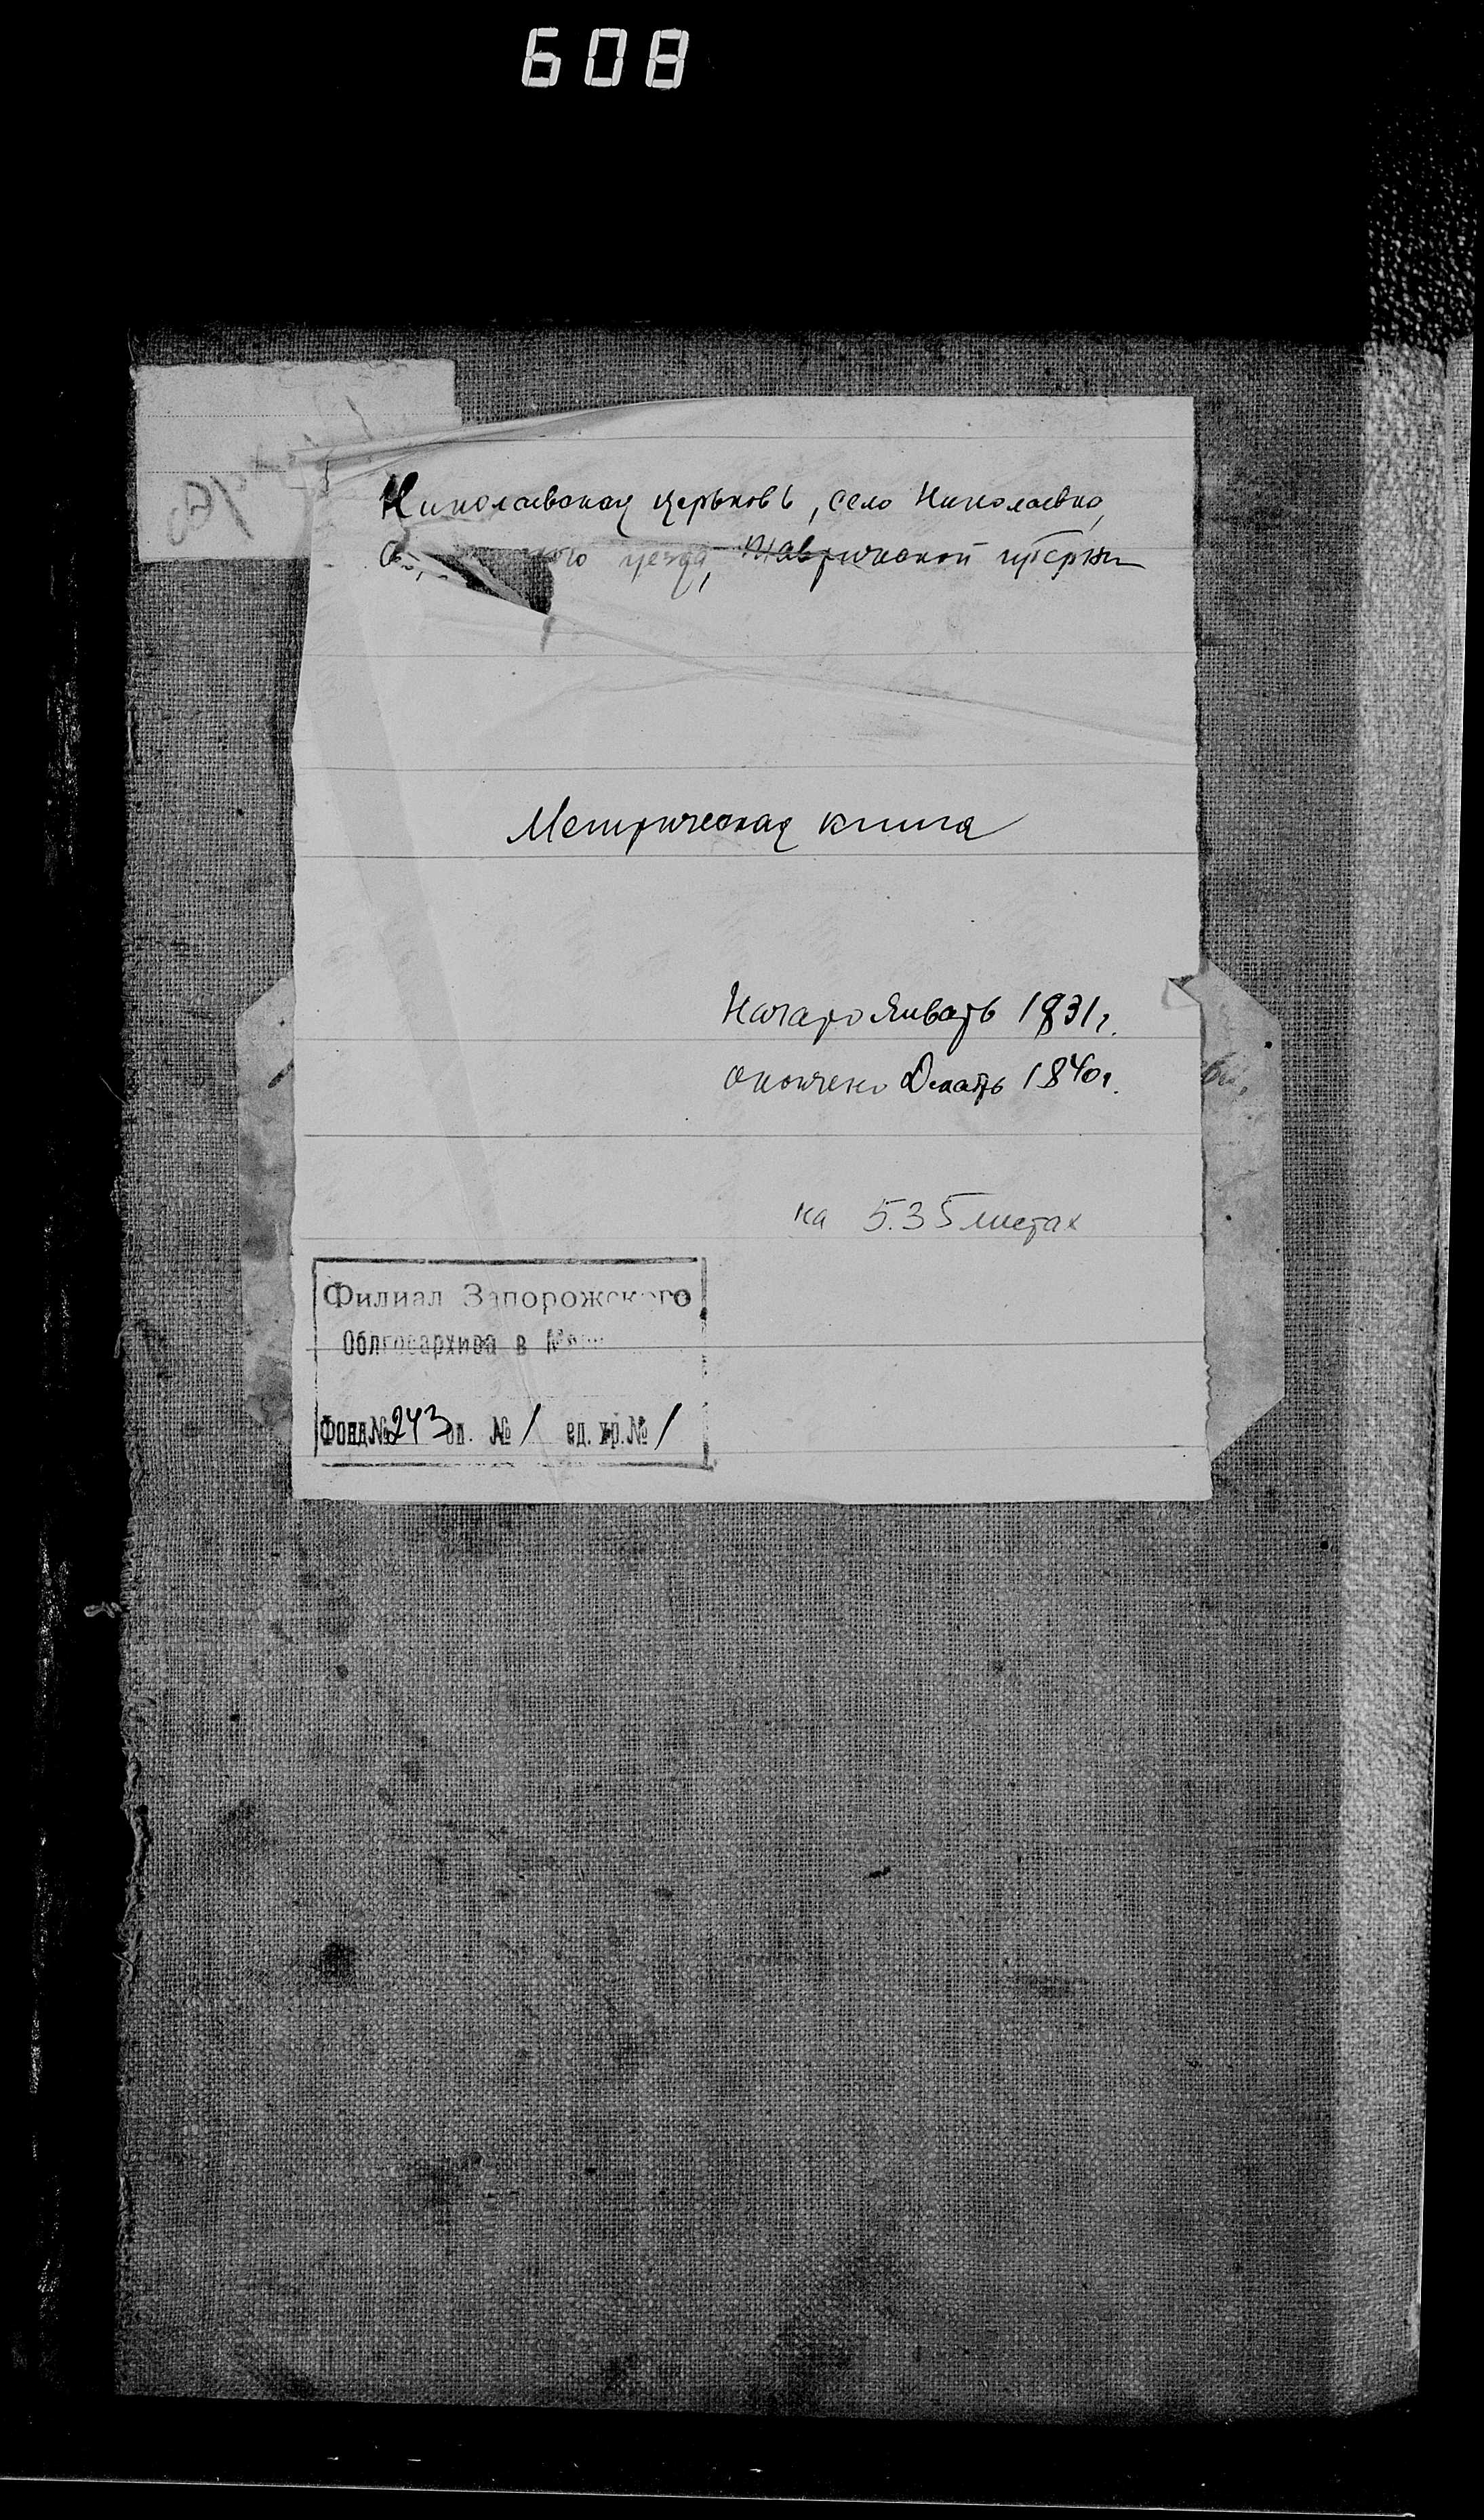 608
Николаевская церьковь, село Николаевка,
уезда, Таврической губернии
Метрическая книга
Начато Январь 1831г.
окончено Декабрь 1840г.
на 535 листах
Филиал Запорожского
Облгосархива в
Фонд№ 243 оп. № 1 ед. хр.№ 1